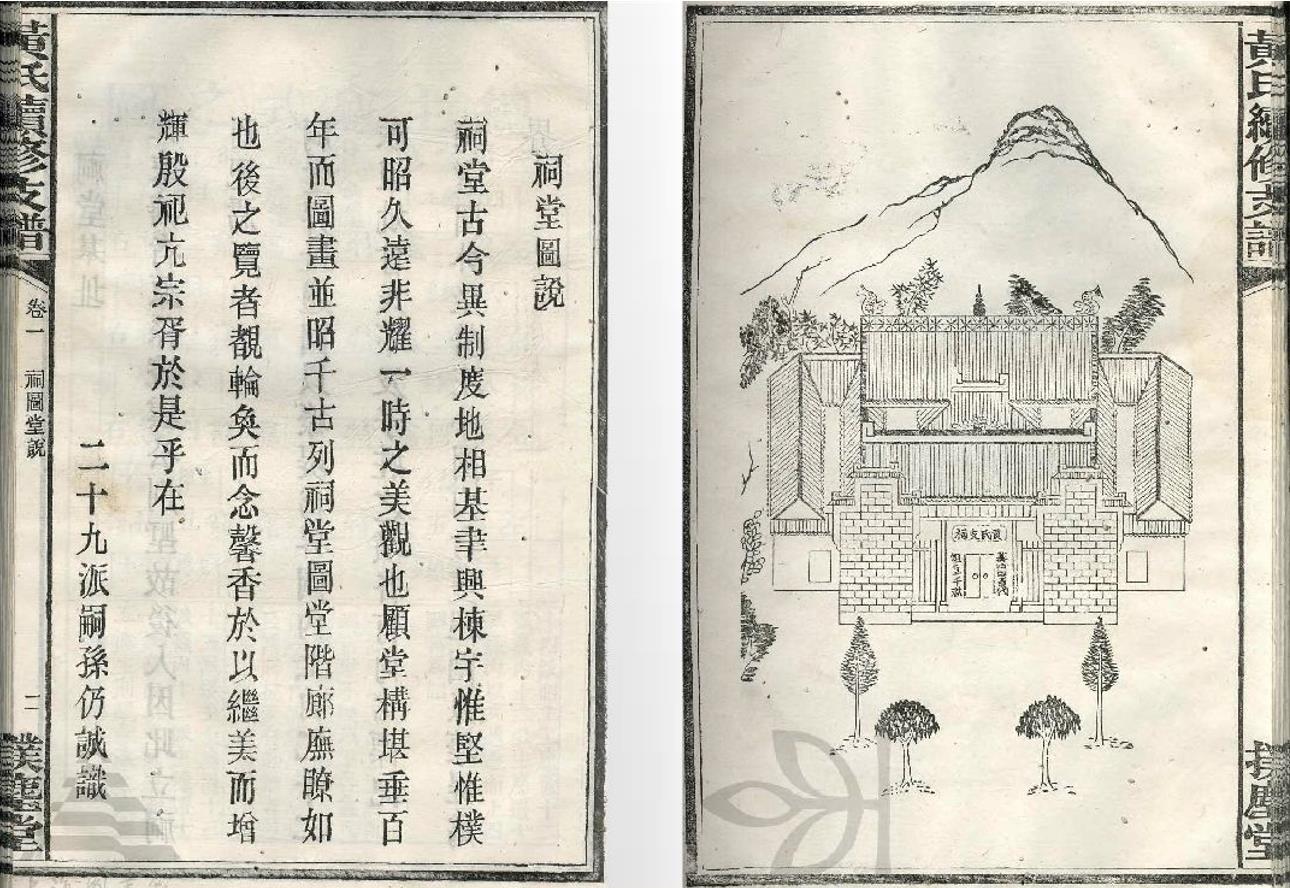 黃氏續修支譜
撲塵堂
黃氏支祠
祠堂圖說
祠堂古今異制度地相基聿興棟宇惟堅惟樸
可昭久遠非耀一時之美觀也顧堂構堪垂百
年而圖畫並昭千古列祠堂圖堂階廊廡瞭如
也後之覽者覩輪奐而念馨香於以繼美而增
輝殷祀亢宗胥於是乎在
二十九派嗣孫仍誠識
黃氏續修支譜
卷一
祠圖堂說
二
撲塵堂